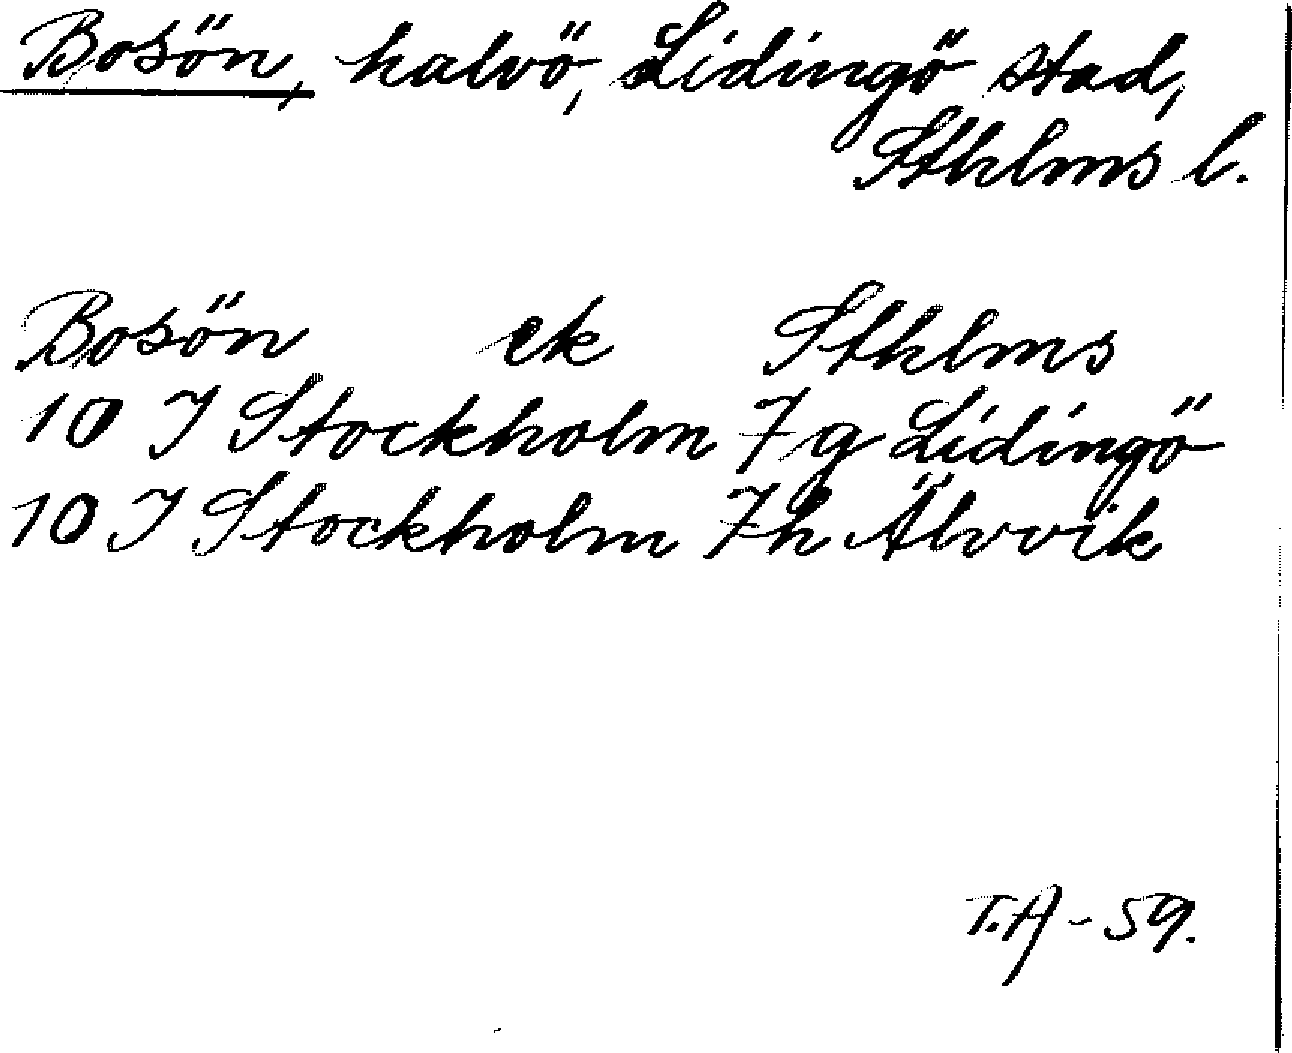 Bosön, halvö, Lidingö stad,
Sthlms l.
Bosön ek Sthlms
10 I Stockholm 7 g Lidingö
10 I Stockholm 7h Älvvik
T.A-59.